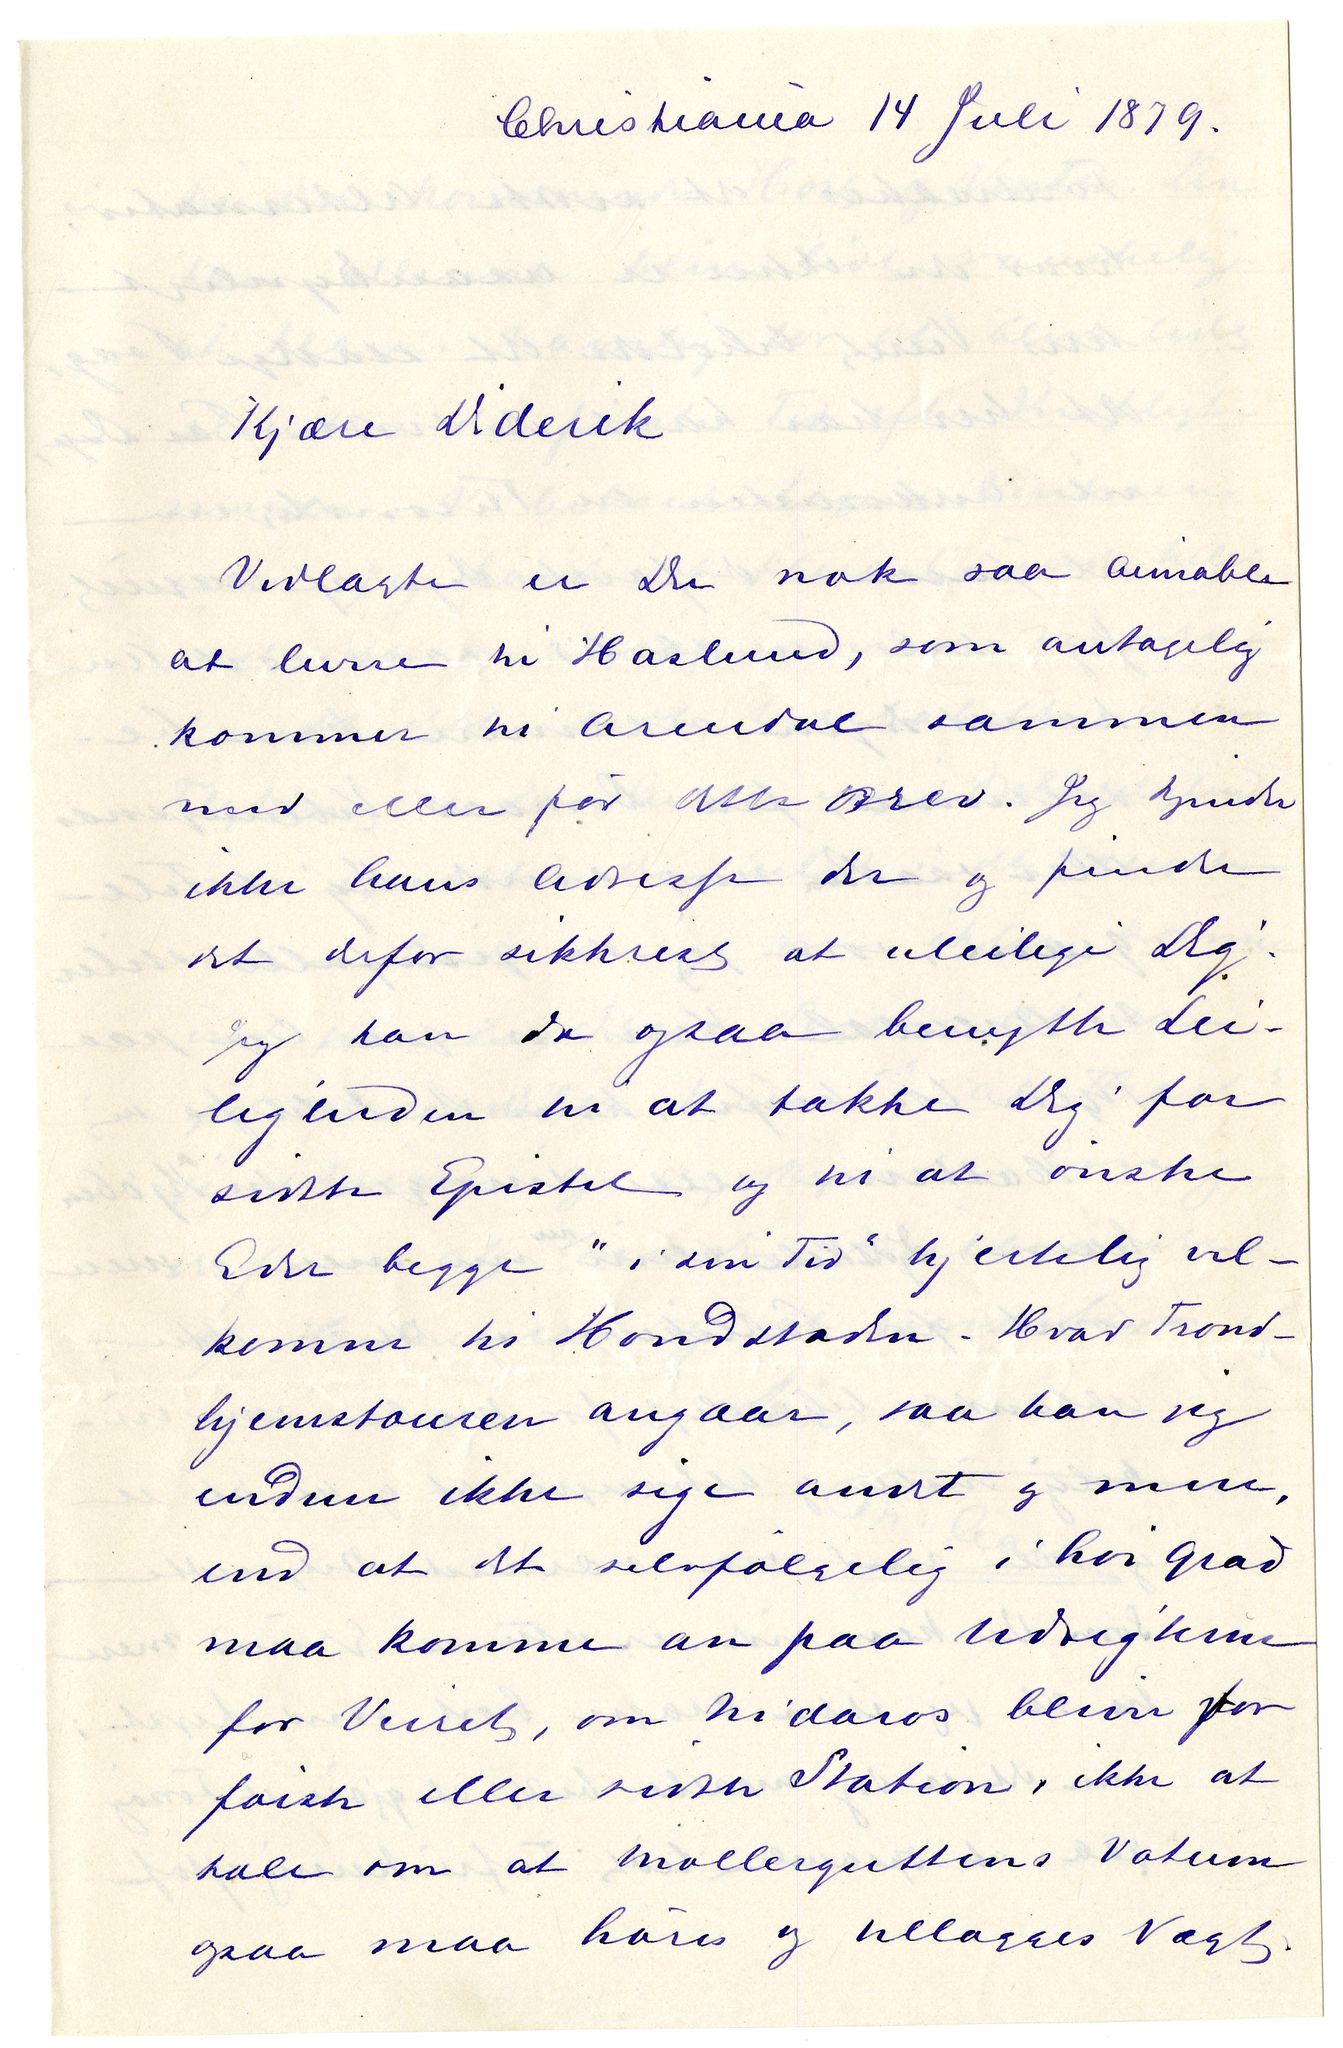 Christiania 14 Juli 1879.
Kjære Diderik
Vedlagte er Du nok saa aimabel
at levere til Haslund, som antagelig
kommer til Arendal sammen
med eller før dette Brev. Jeg kjender
ikke hans Adresse der og finder
det derfor sikkrest at uleilige Dig.
Jeg kan da ogsaa benytte Lei-
ligheden til at takke Dig for
sidste Epistel og til at ønske
Eder begge "i sin Tid" hjertelig vel-
kommen til Hovedstaden. Hvad Trond-
hjemstouren angaar, saa kan jeg
endnu ikke sige andet og mere,
end at det selvfølgelig i høi Grad
maa komme an paa Udsigterne
for Veiret, om Nidaros bliver
første eller sidste Station, ikke at
tale om at Møllerguttens Votum
ogsaa maa høres og tillægges Vægt.